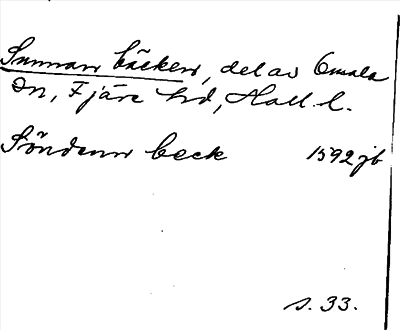 Sunnan bäcken, del av Omala
Ön, Fjäre hd, Hall. l.
Söndann beck 1592 jb
s. 33.